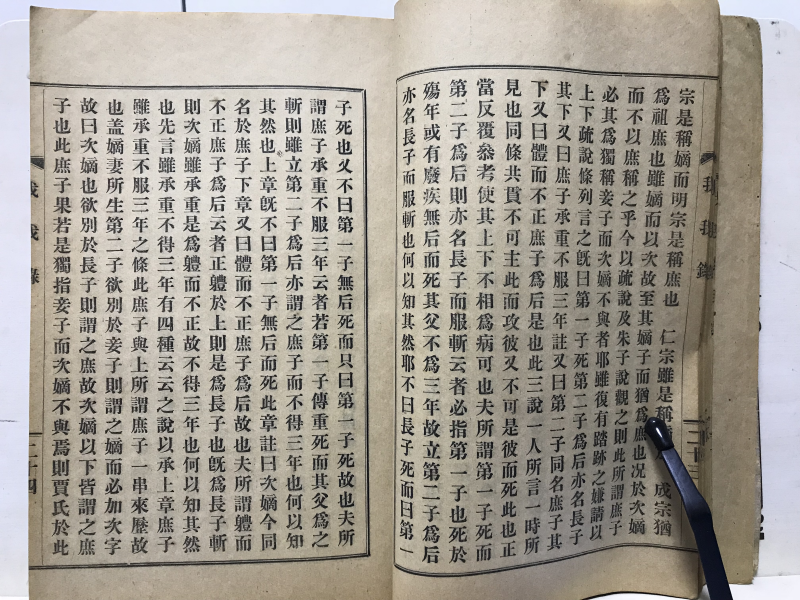 宗是稱嫡而明宗是稱庶也　仁宗雖是稱　成宗猶
爲祖庶也雖嫡而以次故至其嫡子而猶爲庶也况於次嫡
而不以庶稱之乎今以疏說及朱子說觀之則此所謂庶子
必其爲獨稱妾子而次嫡不與者耶雖復有踏跡之嫌請以
上下疏說條列言之旣曰第一子死第二子爲后亦名長子
其下又曰庶子承重不服三年註又曰第二子同名庶子其
下又曰體而不正庶子爲后是也此三說一人所言一時所
見也同條共貫不可主此而攻彼又不可是彼而死此也正
當反覆叅考使其上下不相爲病可也夫所謂第一子死而
第二子爲后則亦名長子而服斬云者必指第一子也死於
殤年或有廢疾無后而死其父不爲三年故立第二子爲后
亦名長子而服斬也何以知其然耶不曰長子死而曰第一
二十三
子死也又不曰第一子無后死而只曰第一子死故也夫所
謂庶子承重不服三年云者若第一子傳重死而其父爲之
斬則雖立第二子爲后亦謂之庶子而不得三年也何以知
其然也上章旣不曰第一子無后而死此章註曰次嫡今同
名於庶子下章又曰體而不正庶子爲后故也夫所謂軆而
不正庶子爲后云者正軆於上則是爲長子也旣爲長子斬
則次嫡雖承重是爲軆而不正故不得三年也何以知其然
也先言雖承重不得三年有四種云云之說以承上章庶子
雖承重不服三年之條此庶子與上所謂庶子一串來歷故
也盖嫡妻所生第二子欲別於妾子則謂之嫡而必加次字
故曰次嫡也欲別於長子則謂之庶故次嫡以下皆謂之庶
子也此庶子果若是獨指妾子而次嫡不與焉則賈氏於此
二十四